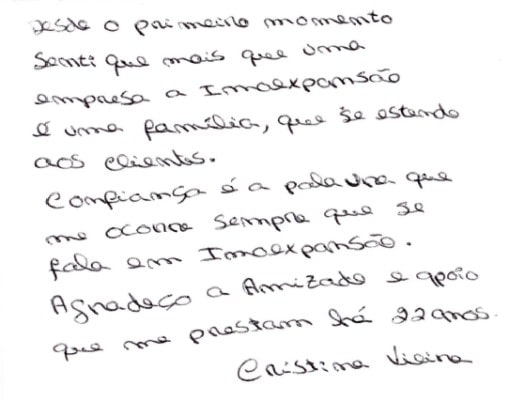 Desde o primeiro momento
senti que mais que uma
empresa a Imoexpansão
é uma família, que se estende
aos clientes.
Confiança é a palavra que
me ocorre sempre que se
fala em Imoexpansão.
Agradeço a Amizade e apoio
que me prestam há 22 anos.
Cristina Vieira